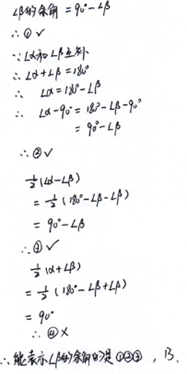 ∠β的余角 = 90° - ∠β
∴ ① ✓
∵ ∠α和∠β互补
∴ ∠α + ∠β = 180°
∴ ∠α = 180° - ∠β
∴ ∠α - 90° = 180° - ∠β - 90°
= 90° - ∠β
∴ ② ✓
½(∠α - ∠β)
= ½(180° - ∠β - ∠β)
= 90° - ∠β
∴ ③ ✓
½(∠α + ∠β)
= ½(180° - ∠β + ∠β)
= 90°
∴ ④ ×
∴ 能表示∠β的余角的是①②③, B.